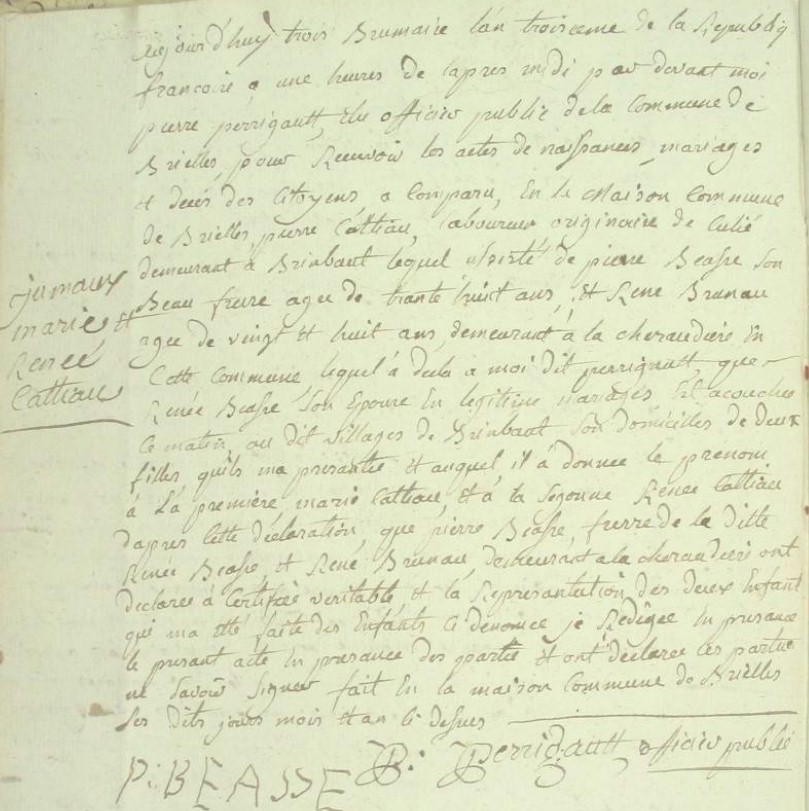 aujourd'huy trois Brumaire l'an troisieme de la Republiq
francoise a une heures de lapres midi par devant moi
pierre perrigault, Elu officier public de la Commune de
Brielles, pour Recevoir les actes de naissances, mariages
et deces des Citoyens, a Comparu, En la Maison Commune
de Brielles, pierre Cattiau, laboureur originaire de Culié
demeurant a Brinbaut lequel assisté de pierre Beasse Son
Beau frere agee de trante huit ans, et René Brunau
agee de vingt et huit ans, demeurant à la cheraudiere En
Cette Commune lequel à dela a moi dit perrigault, que
Renée Beasse Son Epouse En legitime mariages Est acouchee
Ce matin au dit villages de Brinbaut Son domicilles de deux
filles quils ma presantée et auquel il à donnee le prenom
à la première, marie Cattiau, et à la Segonne Renée Cattiau
dapres Cette déclaration, que pierre Beasse, frerre de la ditte
Renée Beasse, et René Brunau, demeurant a la cheraudiere ont
declaree à Certifiée veritable et la Representation, des deux Enfant
qui ma été faite des Enfants Ci denomee je Redigee En presance
le presant acte En presance des partie et ont declaree les partie
ne Savoir Signer fait En la maison Commune de Brielles
Les dits jours mois et an Ci desues
jumaux
marie, et
Renée
Cattiau
P: BEASSE P: Perrigault officier public